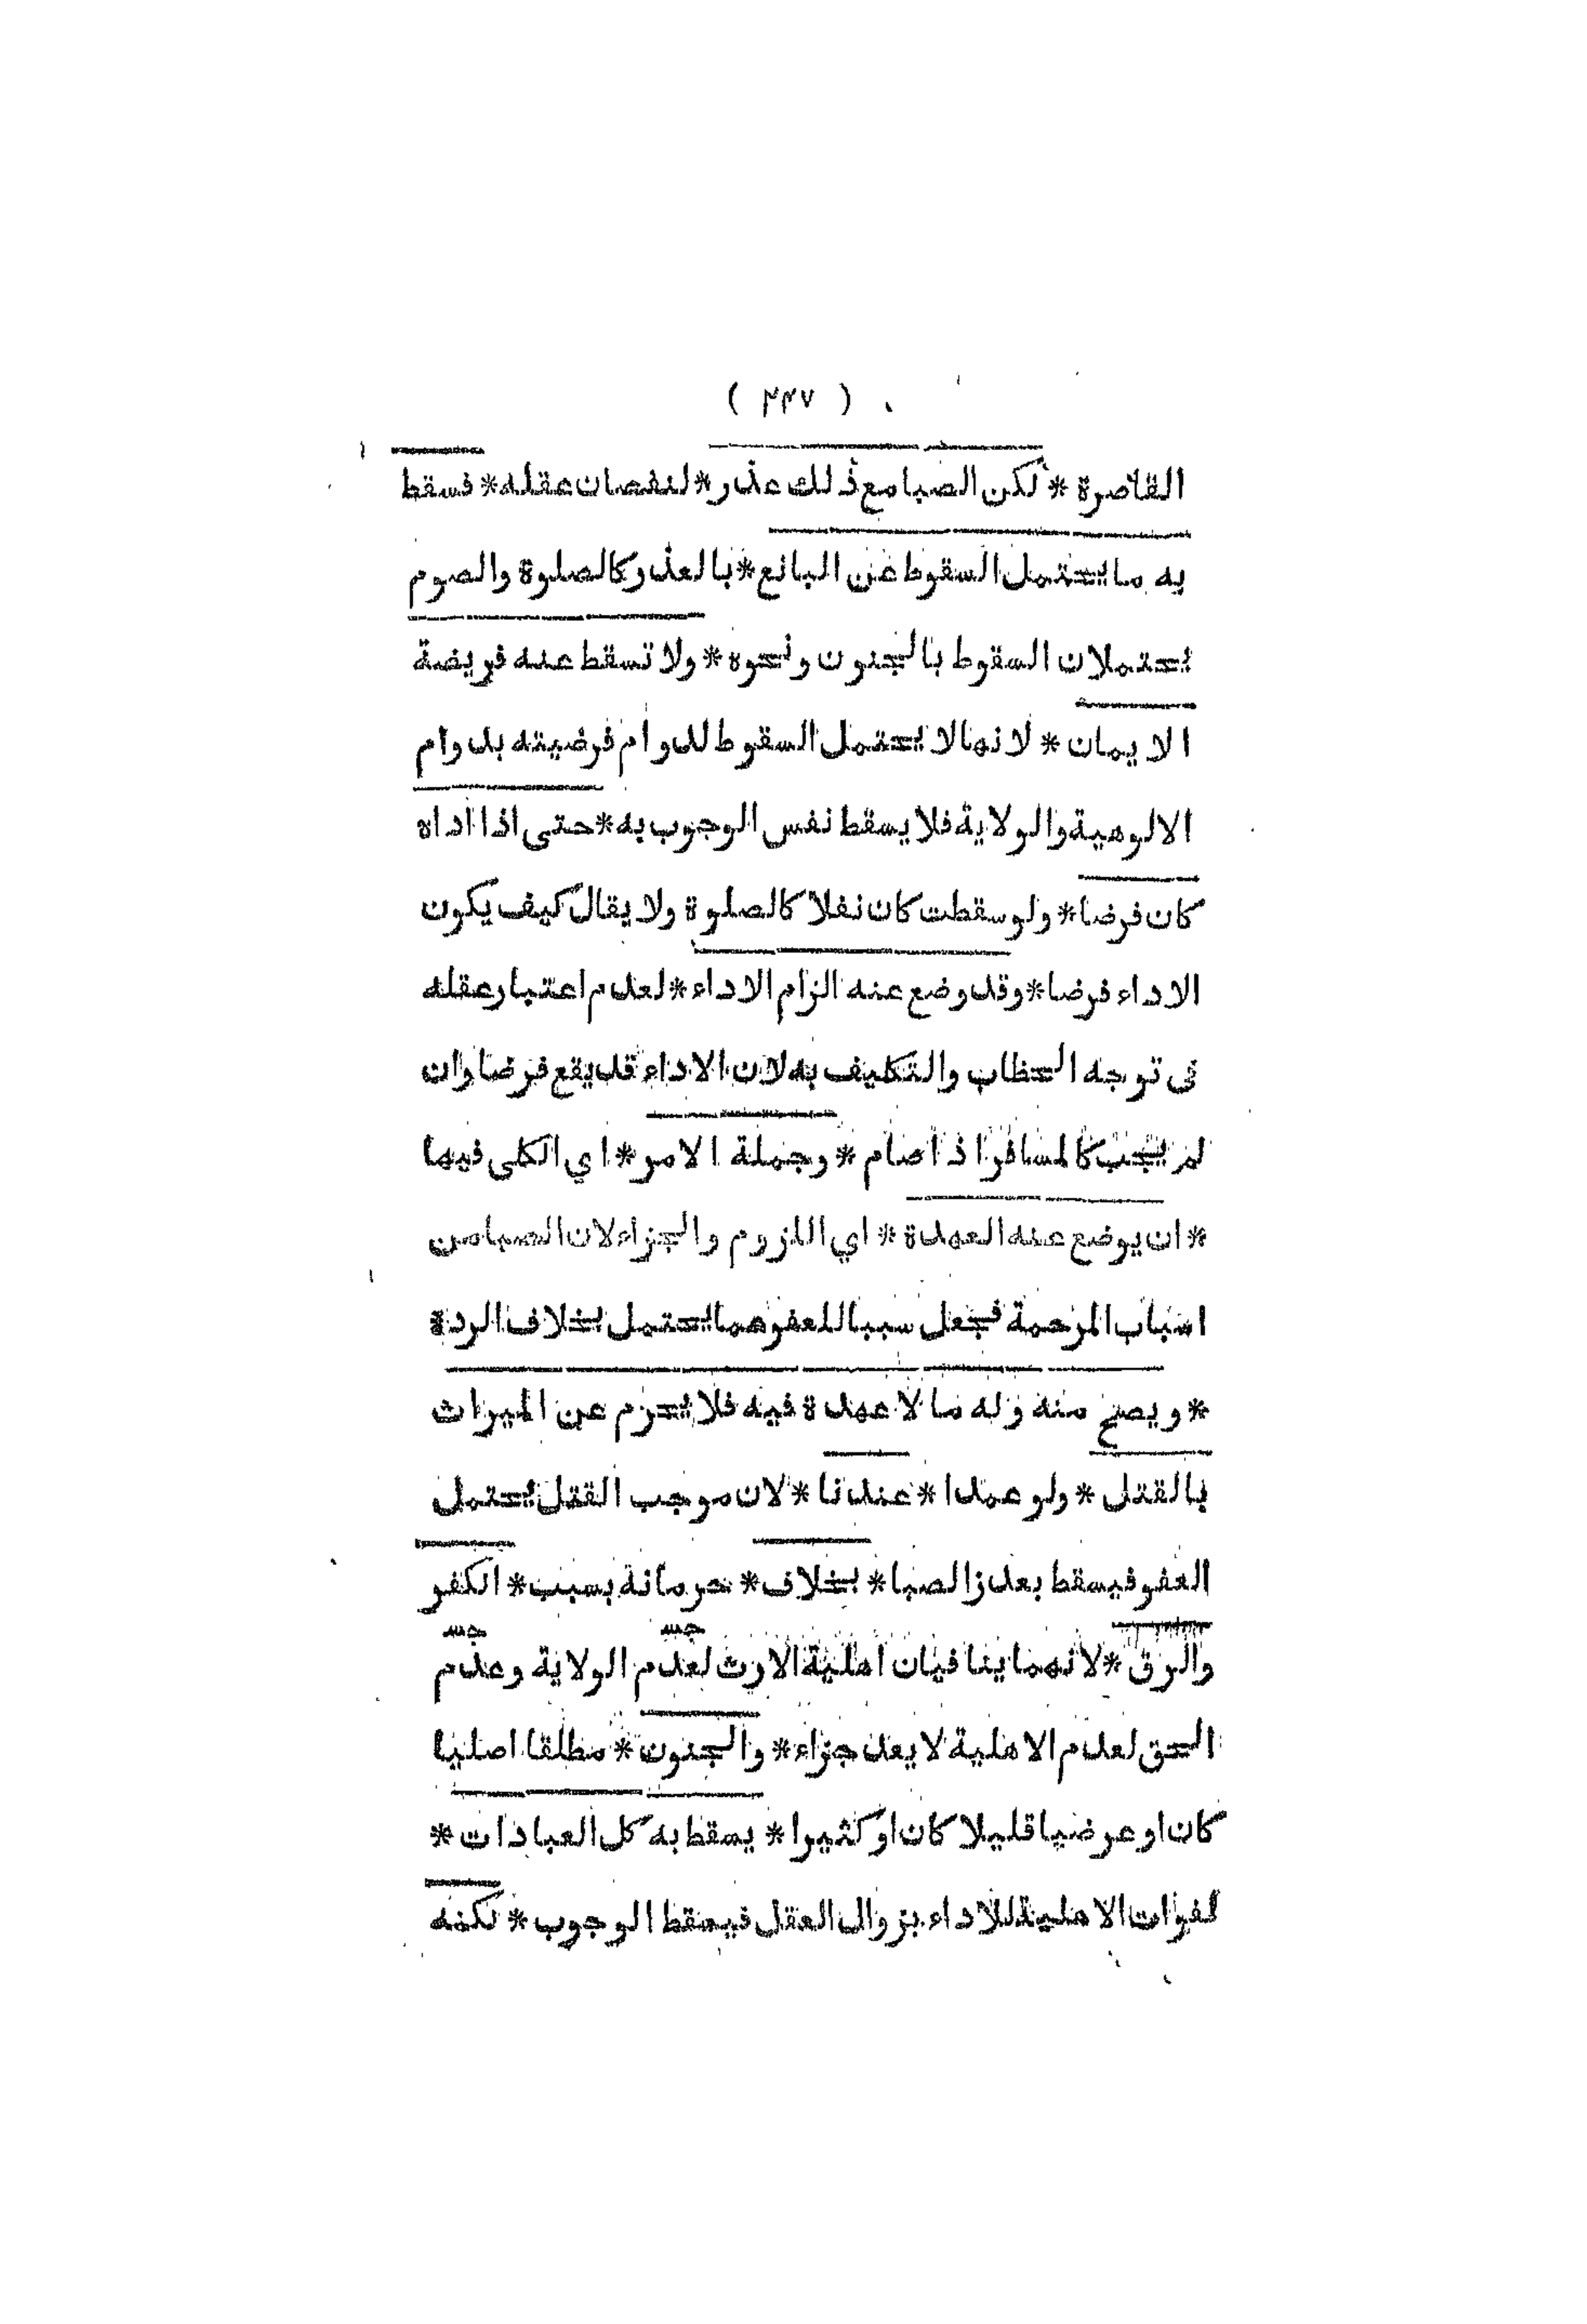 ( ٣٣٧ )
القاصرة * لكن الصبا مع ذلك عذر * لنقصان عقله * فسقط
به ما يحتمل السقوط عن البالغ * بالعذر كالصلوة والصوم
يحتملان السقوط بالجنون ونحوه * ولا تسقط عنه فريضة
الايمان * لانها لا يحتمل السقوط لدوام فرضيته بدوام
الالوهية والولاية فلا يسقط نفس الوجوب به * حتى اذا اداه
كان فرضا * ولو سقطت كان نفلا كالصلوة ولا يقال كيف يكون
الاداء فرضا * وقد وضع عنه الزام الاداء * لعدم اعتبار عقله
فى توجه الخطاب والتكليف به لان الاداء قد يقع فرضا وان
لم يجب كالمسافر اذا صام * وجملة الامر * اي الكلى فيها
* ان يوضع عنه العهدة * اي اللزوم والجزاء لان الصبا من
اسباب المرحمة فجعل سببا للعفو مما يحتمل بخلاف الردة
* ويصح منه وله ما لا عهدة فيه فلا يحرم عن الميراث
بالقتل * ولو عمدا * عندنا * لان موجب القتل يحتمل
العفو فيسقط بعذر الصبا * بخلاف * حرمانه بسبب * الكفر
والرق * لانهما ينافيان اهلية الارث لعدم الولاية وعدم
الحق لعدم الاهلية لا يعد جزاء * والجنون * مطلقا اصليا
كان او عرضيا قليلا كان او كثيرا * يسقط به كل العبادات *
لفوات الاهلية للاداء بزوال العقل فيسقط الوجوب * لكنه